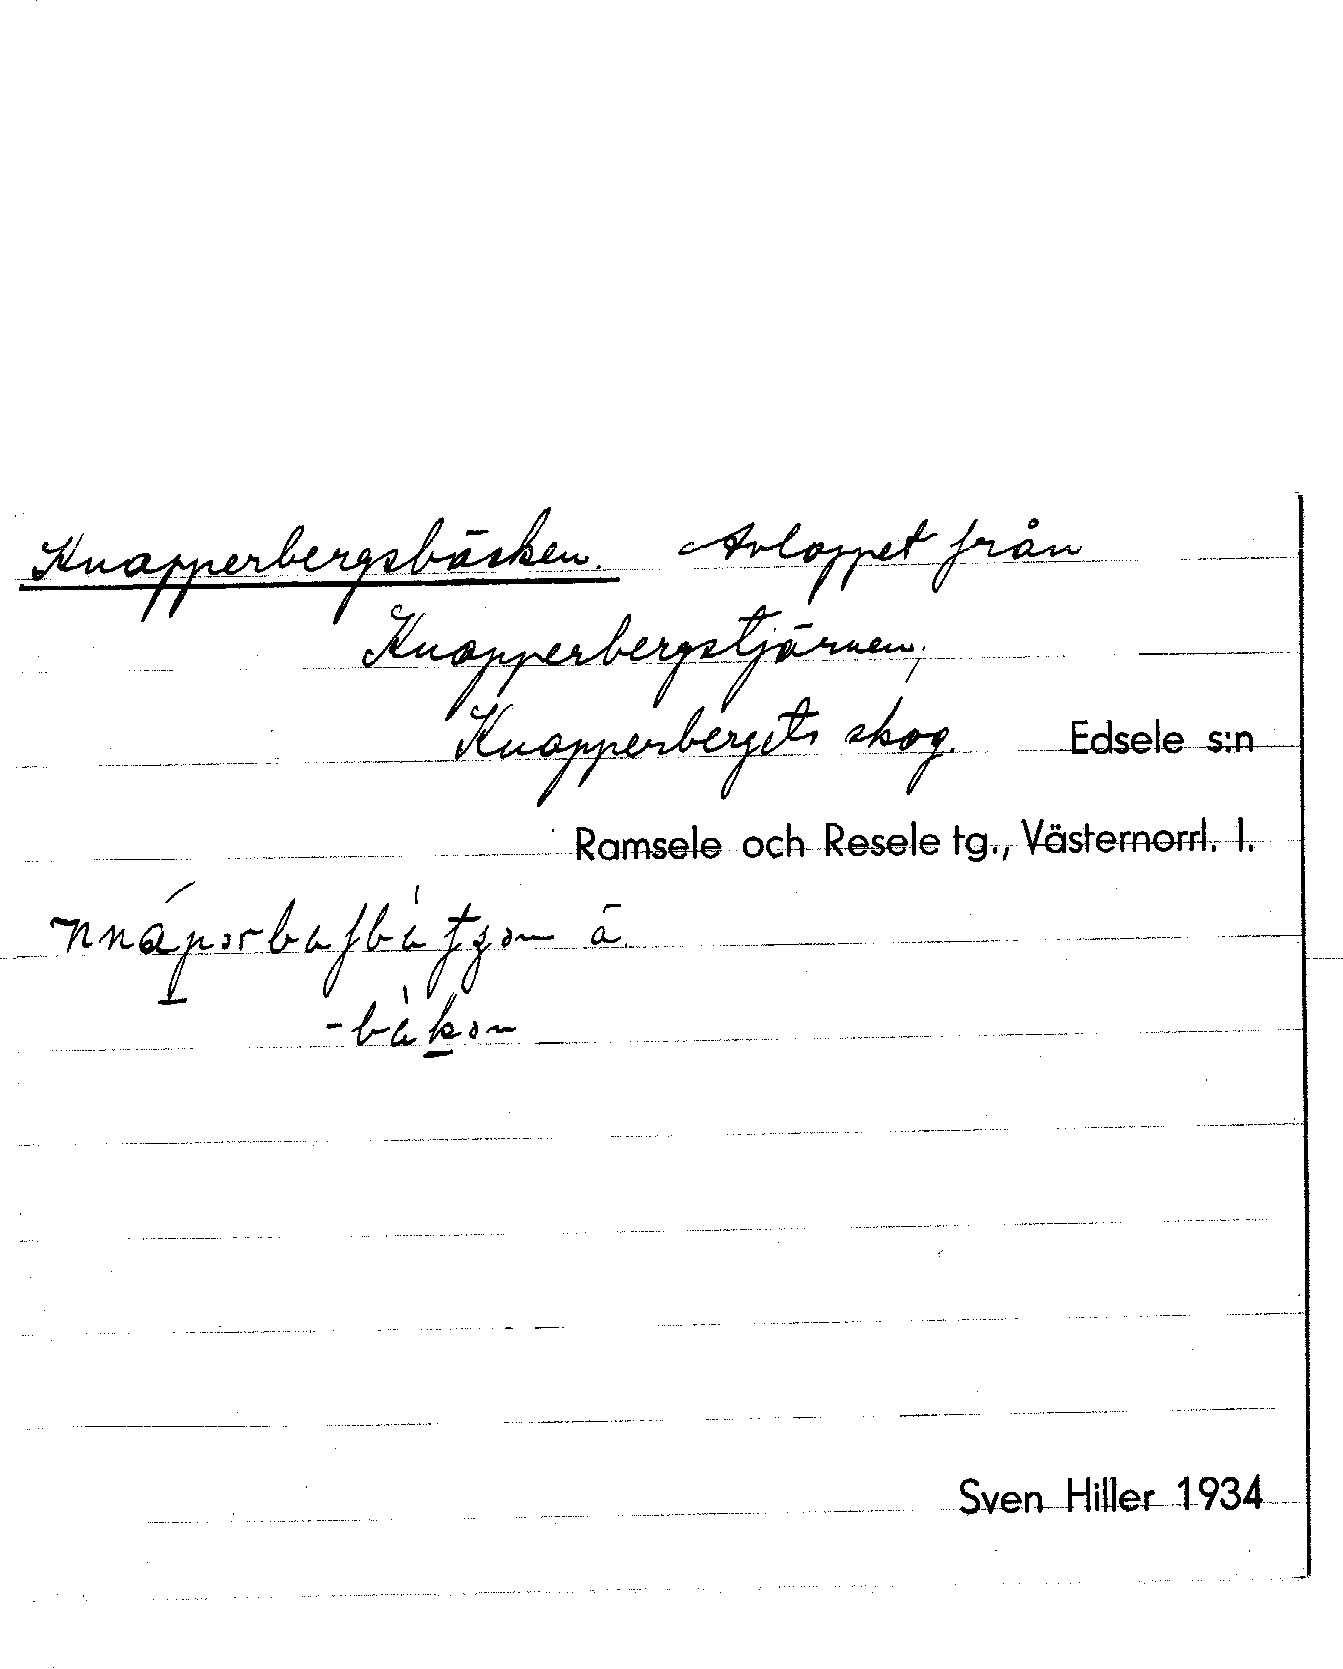 Knapperbergsbäcken. Avloppet från
Knapperbergstjärnen,
Knapperbergets skog. Edsele s:n
Ramsele och Resele tg., Västernorrl. l.
Sven Hiller 1934